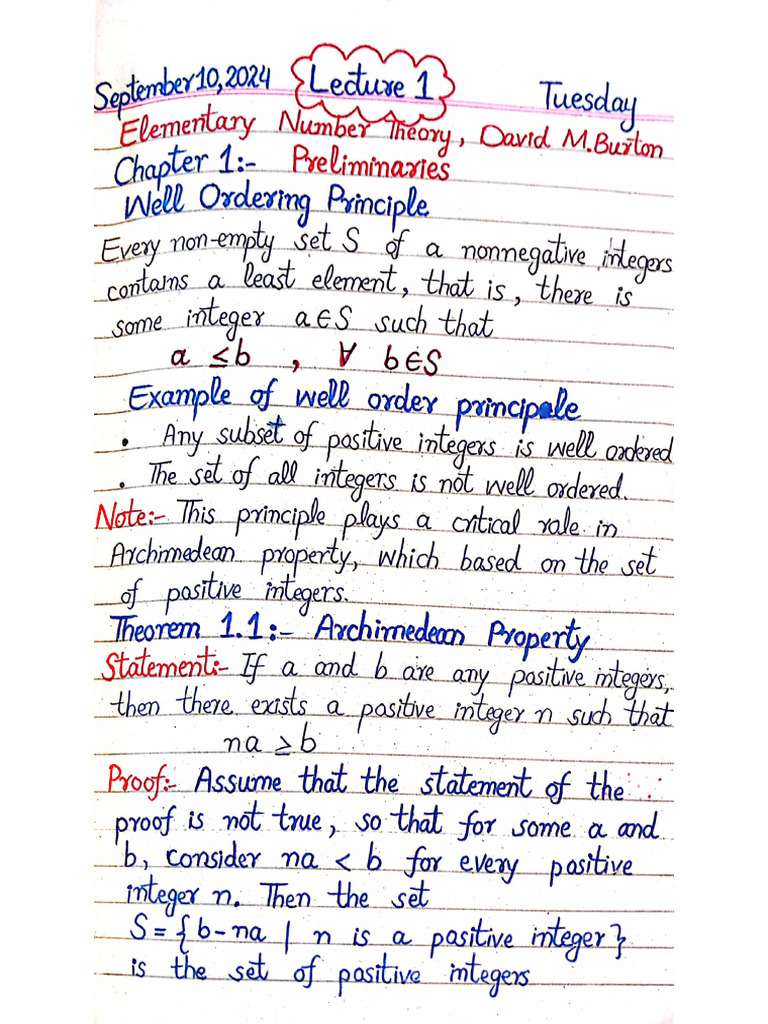 September 10, 2024 Lecture 1 Tuesday
Elementary Number Theory, David M. Burton
Chapter 1:- Preliminaries
Well Ordering Principle
Every non-empty set S of a nonnegative integers
contains a least element, that is, there is
some integer a∈S such that
a ≤ b , ∀ b∈S
Example of well order principale
• Any subset of positive integers is well ordered
• The set of all integers is not well ordered.
Note:- This principle plays a critical rale in
Archimedean property, which based on the set
of positive integers.
Theorem 1.1:- Archimedean Property
Statement:- If a and b are any positive integers,
then there exists a positive integer n such that
na ≥ b
Proof:- Assume that the statement of the
proof is not true, so that for some a and
b, consider na < b for every positive
integer n. Then the set
S = {b-na | n is a positive integer}
is the set of positive integers